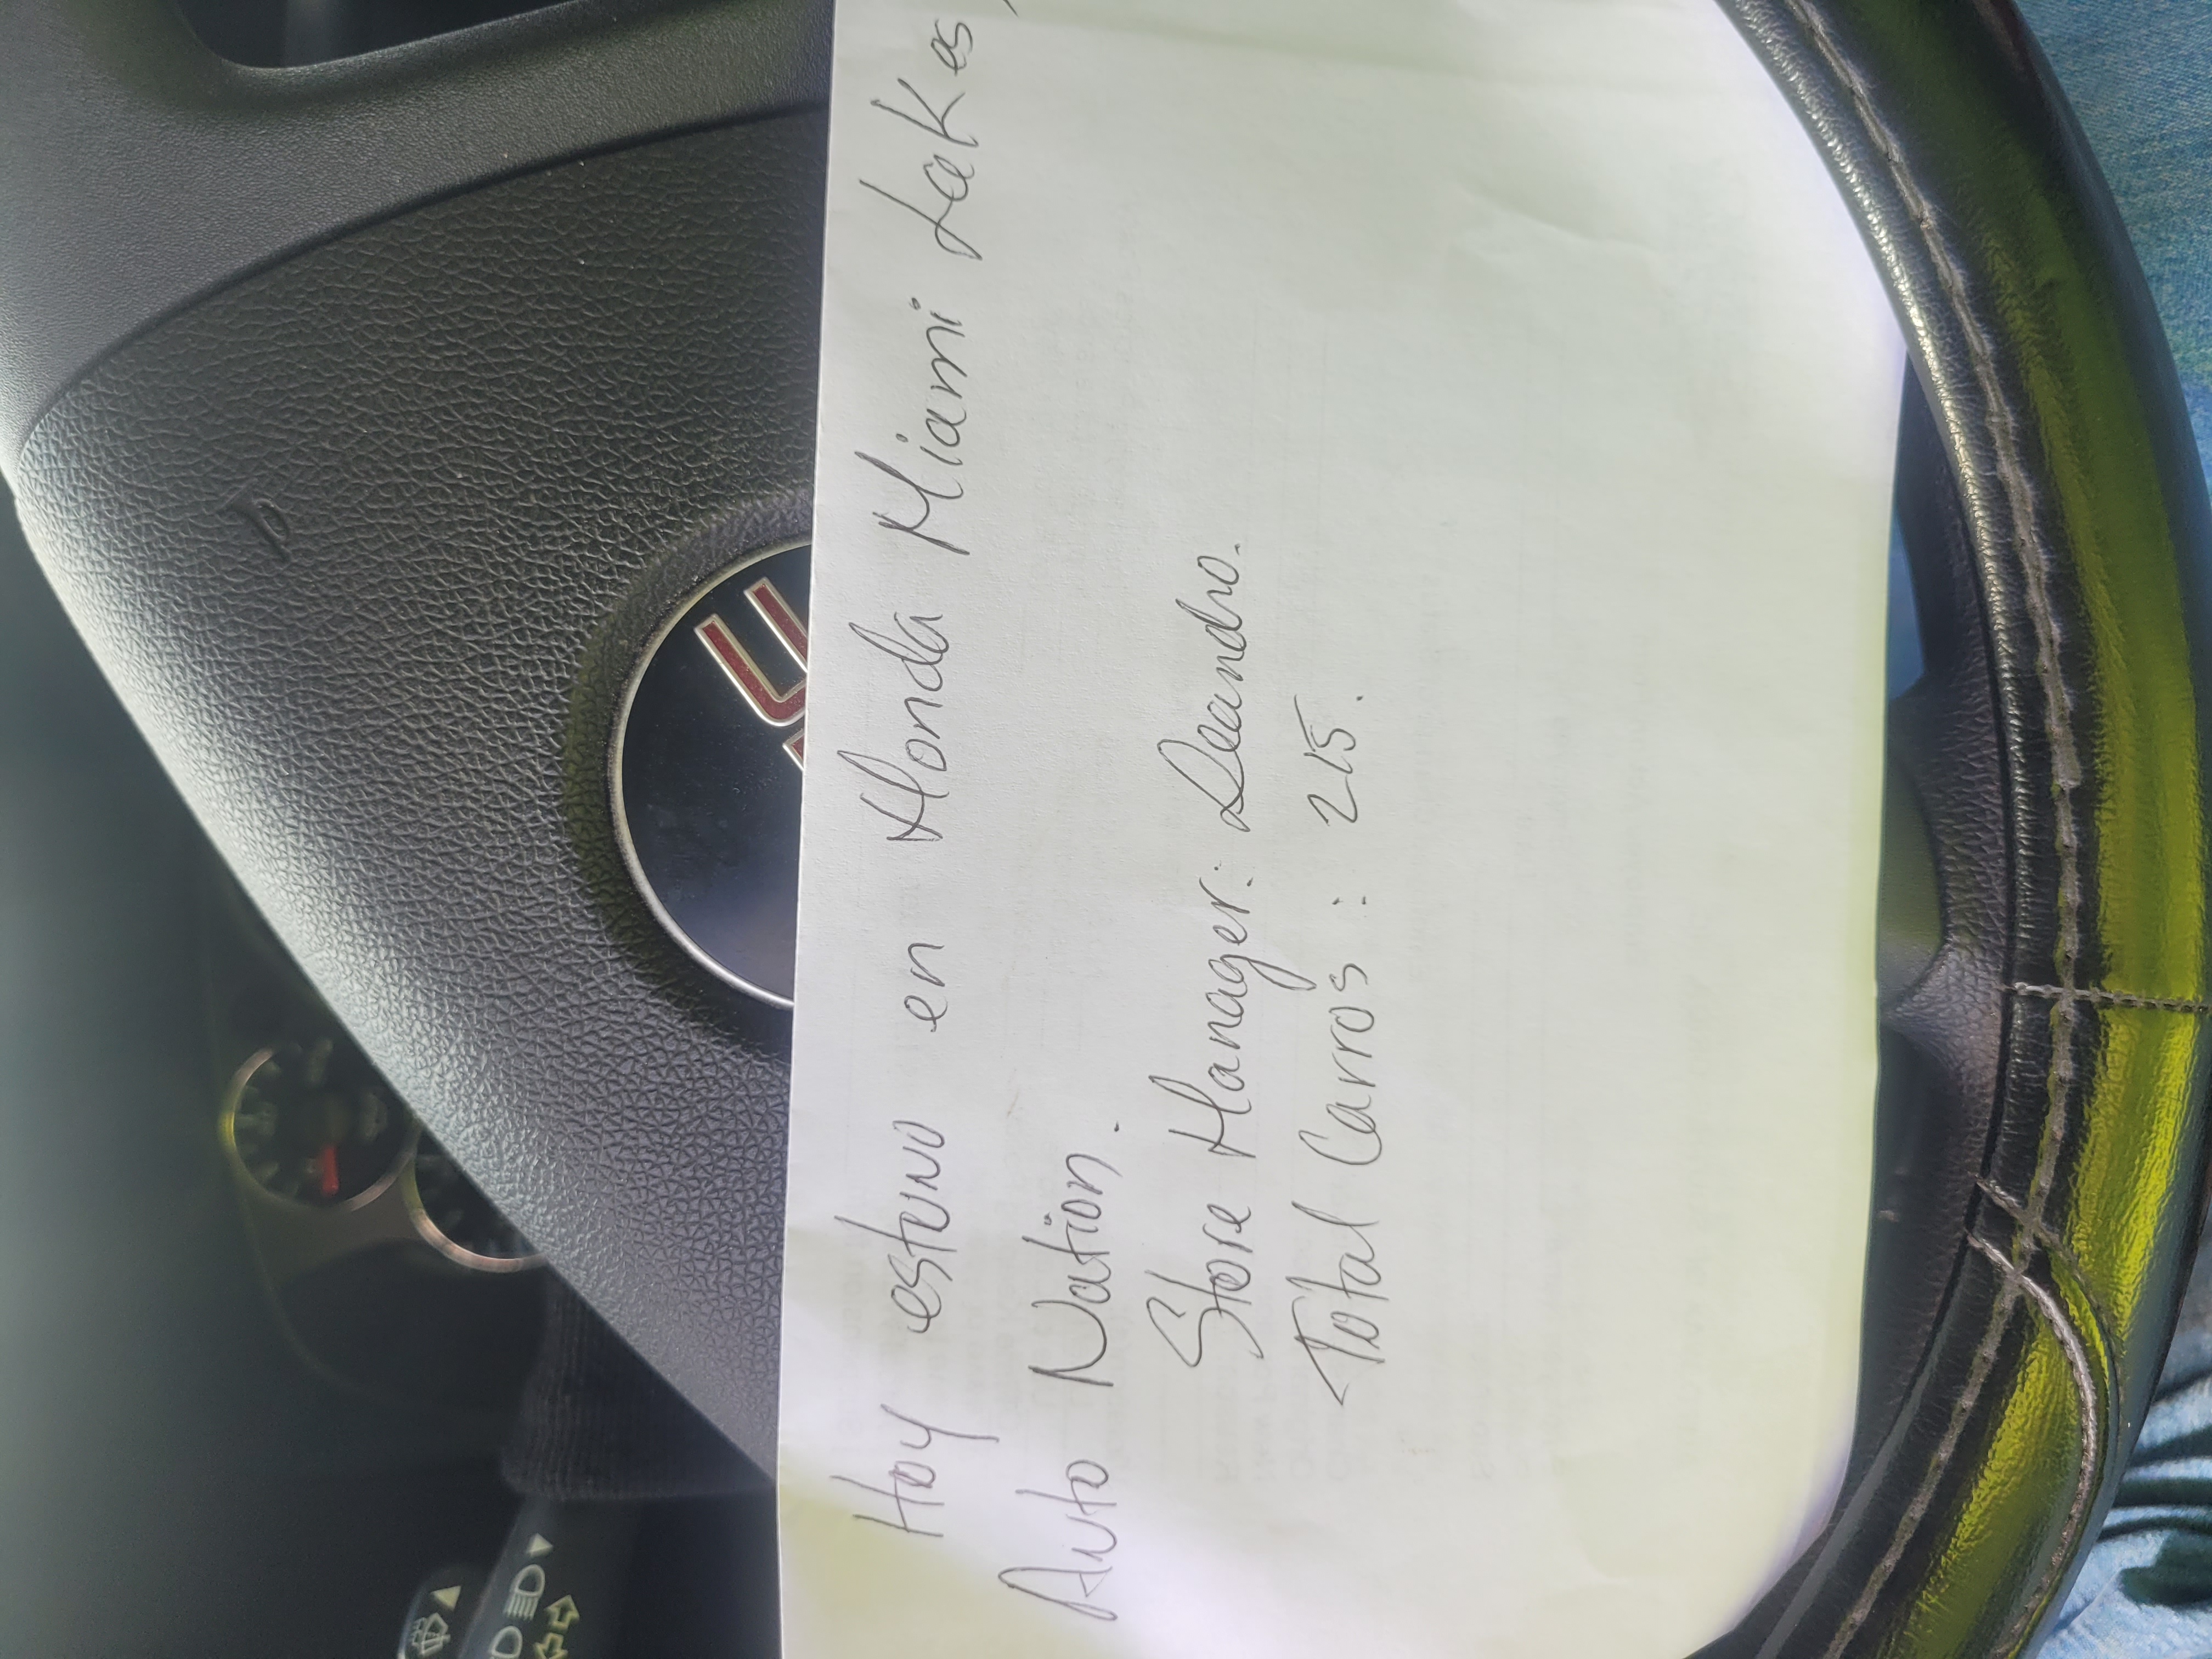 Hoy estuvo en Honda Miami Lakes,
Auto Nation.
Store Manager: Leandro.
Total Carros: 215.